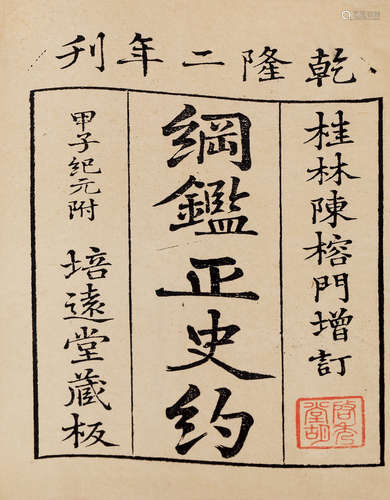 乾隆二年刊
桂林陳榕門增訂
綱鑑正史约
甲子紀元附 培遠堂藏板